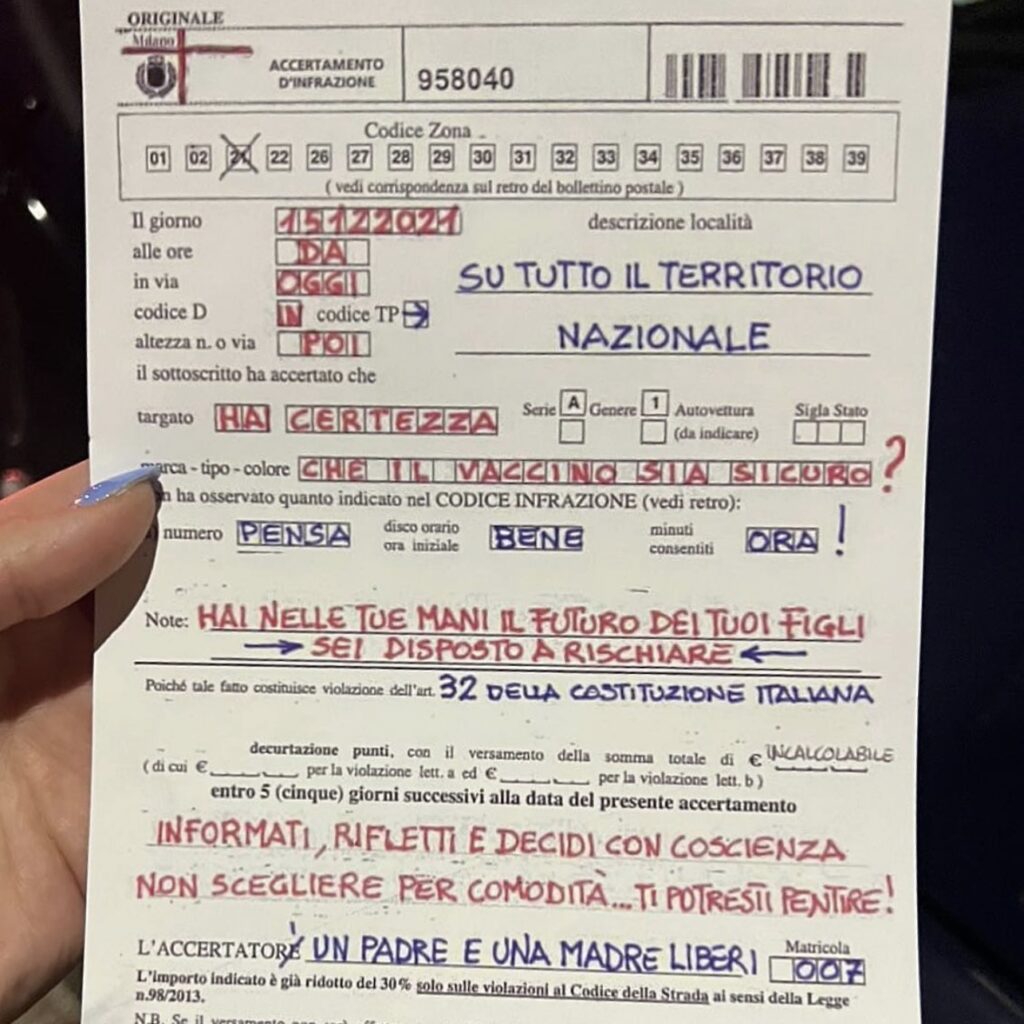 ORIGINALE
Milano
ACCERTAMENTO
D'INFRAZIONE
958040
Codice Zona
01 02 21 22 26 27 28 29 30 31 32 33 34 35 36 37 38 39
( vedi corrispondenza sul retro del bollettino postale )
Il giorno 15122021 descrizione località
alle ore DA
in via OGGI SU TUTTO IL TERRITORIO
codice D IN codice TP →
altezza n. o via POI NAZIONALE
il sottoscritto ha accertato che
targato HAI CERTEZZA Serie A Genere 1 Autovettura (da indicare) Sigla Stato
marca - tipo - colore CHE IL VACCINO SIA SICURO ?
ha osservato quanto indicato nel CODICE INFRAZIONE (vedi retro):
numero PENSA disco orario ora iniziale BENE minuti consentiti ORA !
Note: HAI NELLE TUE MANI IL FUTURO DEI TUOI FIGLI
→ SEI DISPOSTO A RISCHIARE ←
Poiché tale fatto costituisce violazione dell'art. 32 DELLA COSTITUZIONE ITALIANA
decurtazione punti, con il versamento della somma totale di € INCALCOLABILE
( di cui €______ per la violazione lett. a ed €______ per la violazione lett. b )
entro 5 (cinque) giorni successivi alla data del presente accertamento
INFORMATI, RIFLETTI E DECIDI CON COSCIENZA
NON SCEGLIERE PER COMODITÀ...TI POTRESTI PENTIRE!
L'ACCERTATORE UN PADRE E UNA MADRE LIBERI Matricola 007
L'importo indicato è già ridotto del 30% solo sulle violazioni al Codice della Strada ai sensi della Legge
n.98/2013.
N.B. Se il versamento non